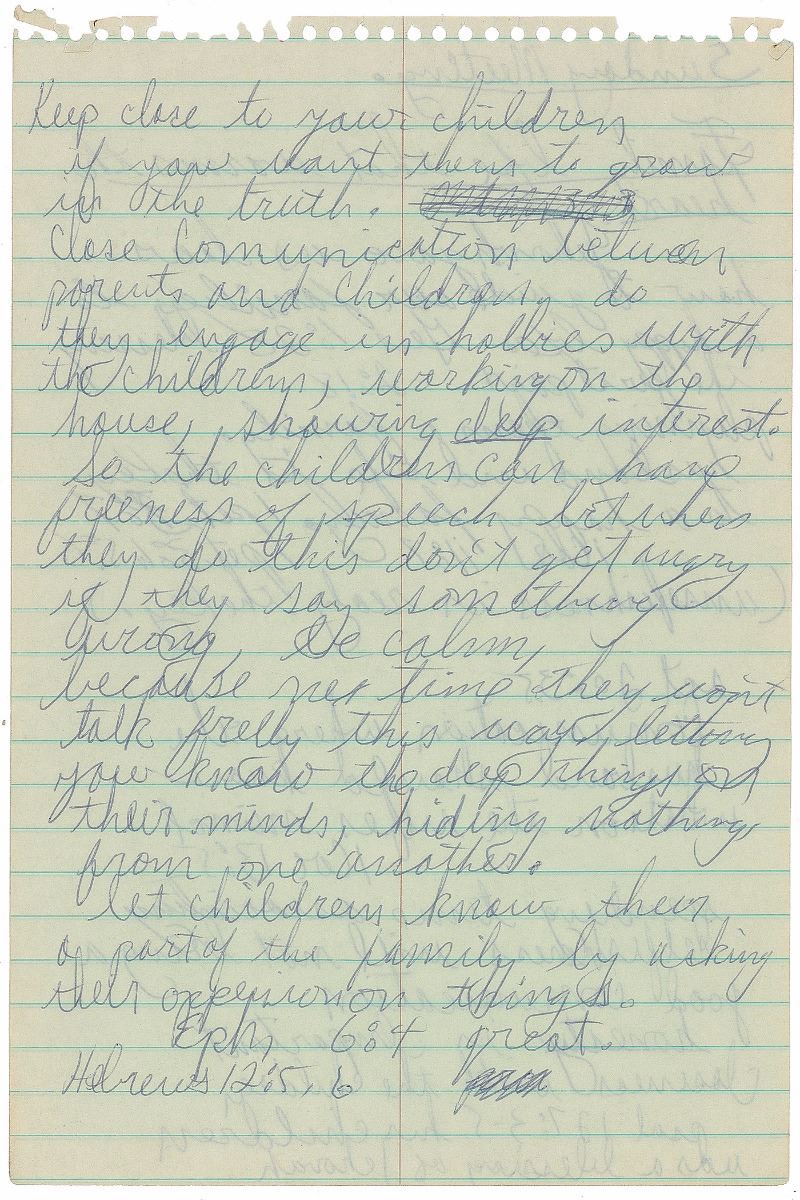 Keep close to your children
if you want them to grow
in the truth.
Close Comunication between
parents and children, do
they engage in hobbies with
the children, working on the
house, showing deep interest.
So the children can have
freeness of speech, but when
they do this don't get angry
if they say something
wrong, Be calm,
because nex time they won't
talk frelly this way, letting
you know the deep things on
their minds, hiding nothing
from one another.
let children know their
a part of the family by asking
their on things.
Eph, 6:4 great.
Hebrews 12:5, 6